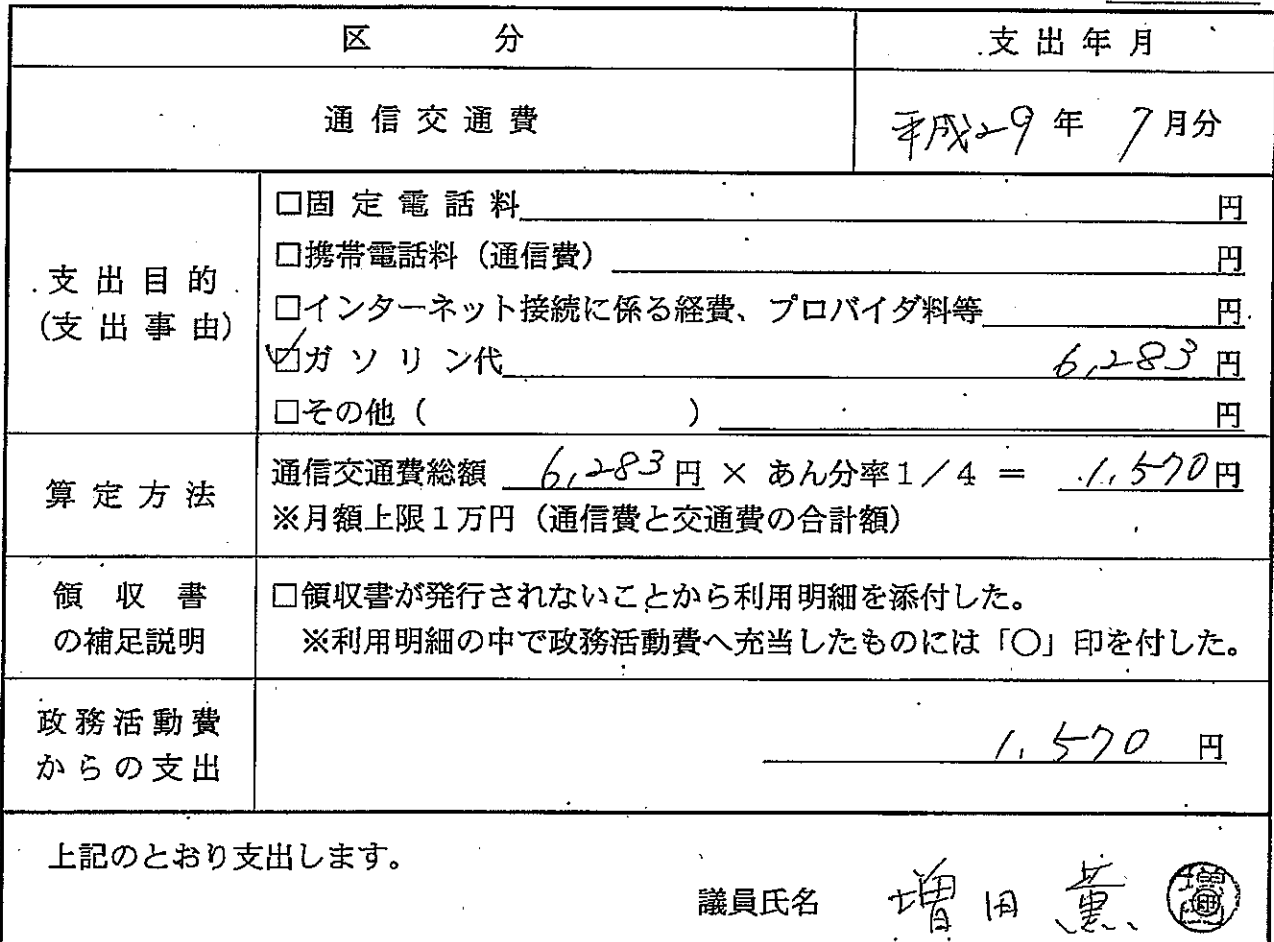 区　分
支出年月
通信交通費
平成29年 7月分
支出目的
(支出事由)
□固定電話料 円
□携帯電話料（通信費） 円
□インターネット接続に係る経費、プロバイダ料等 円
☑ガソリン代 6,283円
□その他（　　） 円
算定方法
通信交通費総額 6,283円 × あん分率1／4 ＝ 1,570円
※月額上限1万円（通信費と交通費の合計額）
領収書
の補足説明
□領収書が発行されないことから利用明細を添付した。
※利用明細の中で政務活動費へ充当したものには「○」印を付した。
政務活動費
からの支出
1,570 円
上記のとおり支出します。
議員氏名 増田 薫 増田